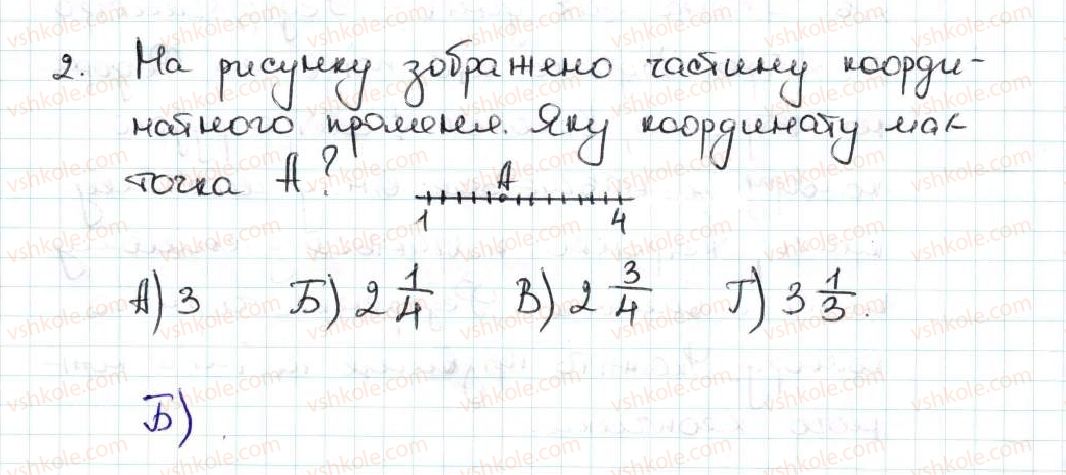 2. На рисунку зображено частину коорди-
натного променя. Яку координату має
точка А?
А
1 4
А) 3 Б) 2 1/4 В) 2 3/4 Г) 3 1/3.
Б)